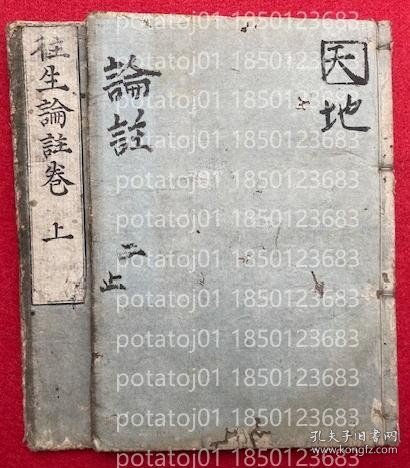 往生論註卷
上
論註
二止
天地
上
potatoj01 1850123683
potatoj01 1850123683
potatoj01 1850123683
potatoj01 1850123683
potatoj01 1850123683
potatoj01 1850123683
potatoj01 1850123683
potatoj01 1850123683
potatoj01 1850123683
孔夫子旧书网
www.kongfz.com